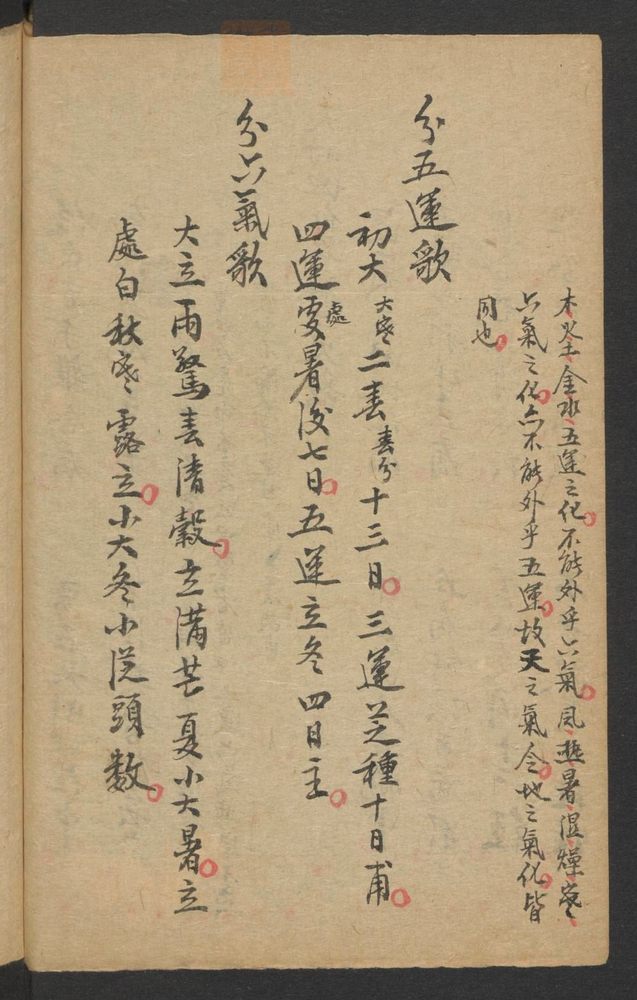 木火土金水五運之化不能外乎六氣風熱暑濕燥寒
六氣之化亦不能外乎五運故天之氣令地之氣化皆
同也
分五運歌
初大大寒二春春分十三日三運芒種十日甫
四運處暑後七日五運立冬四日主
分六氣歌
大立雨驚春清穀立滿芒夏小大暑立
處白秋寒露立小大冬小從頭數